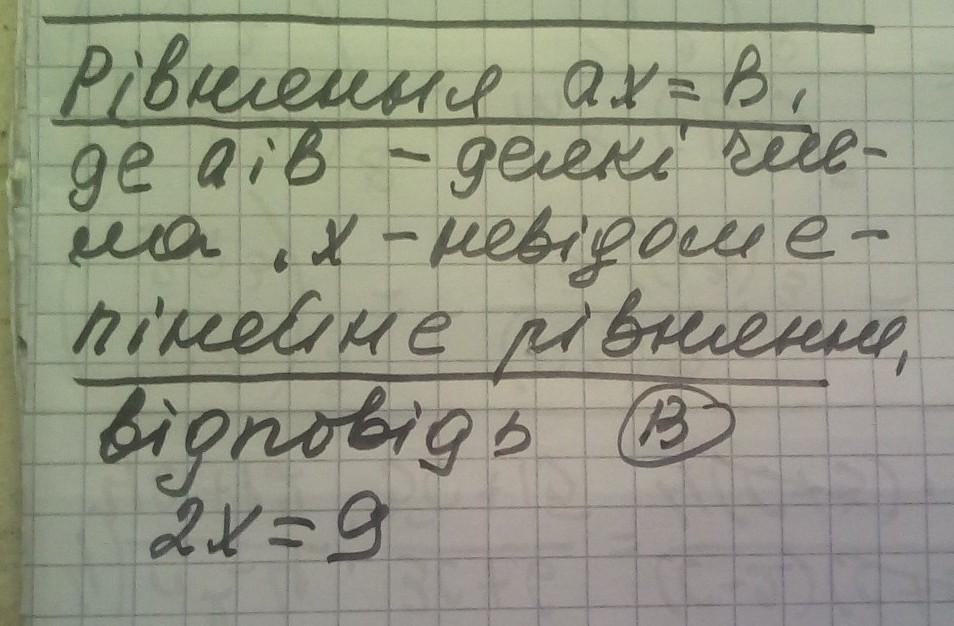 Рівняння ax = в,
де a і в – деякі чис-
ла, x – невідоме –
лінейне рівняння,
відповідь В
2x = 9